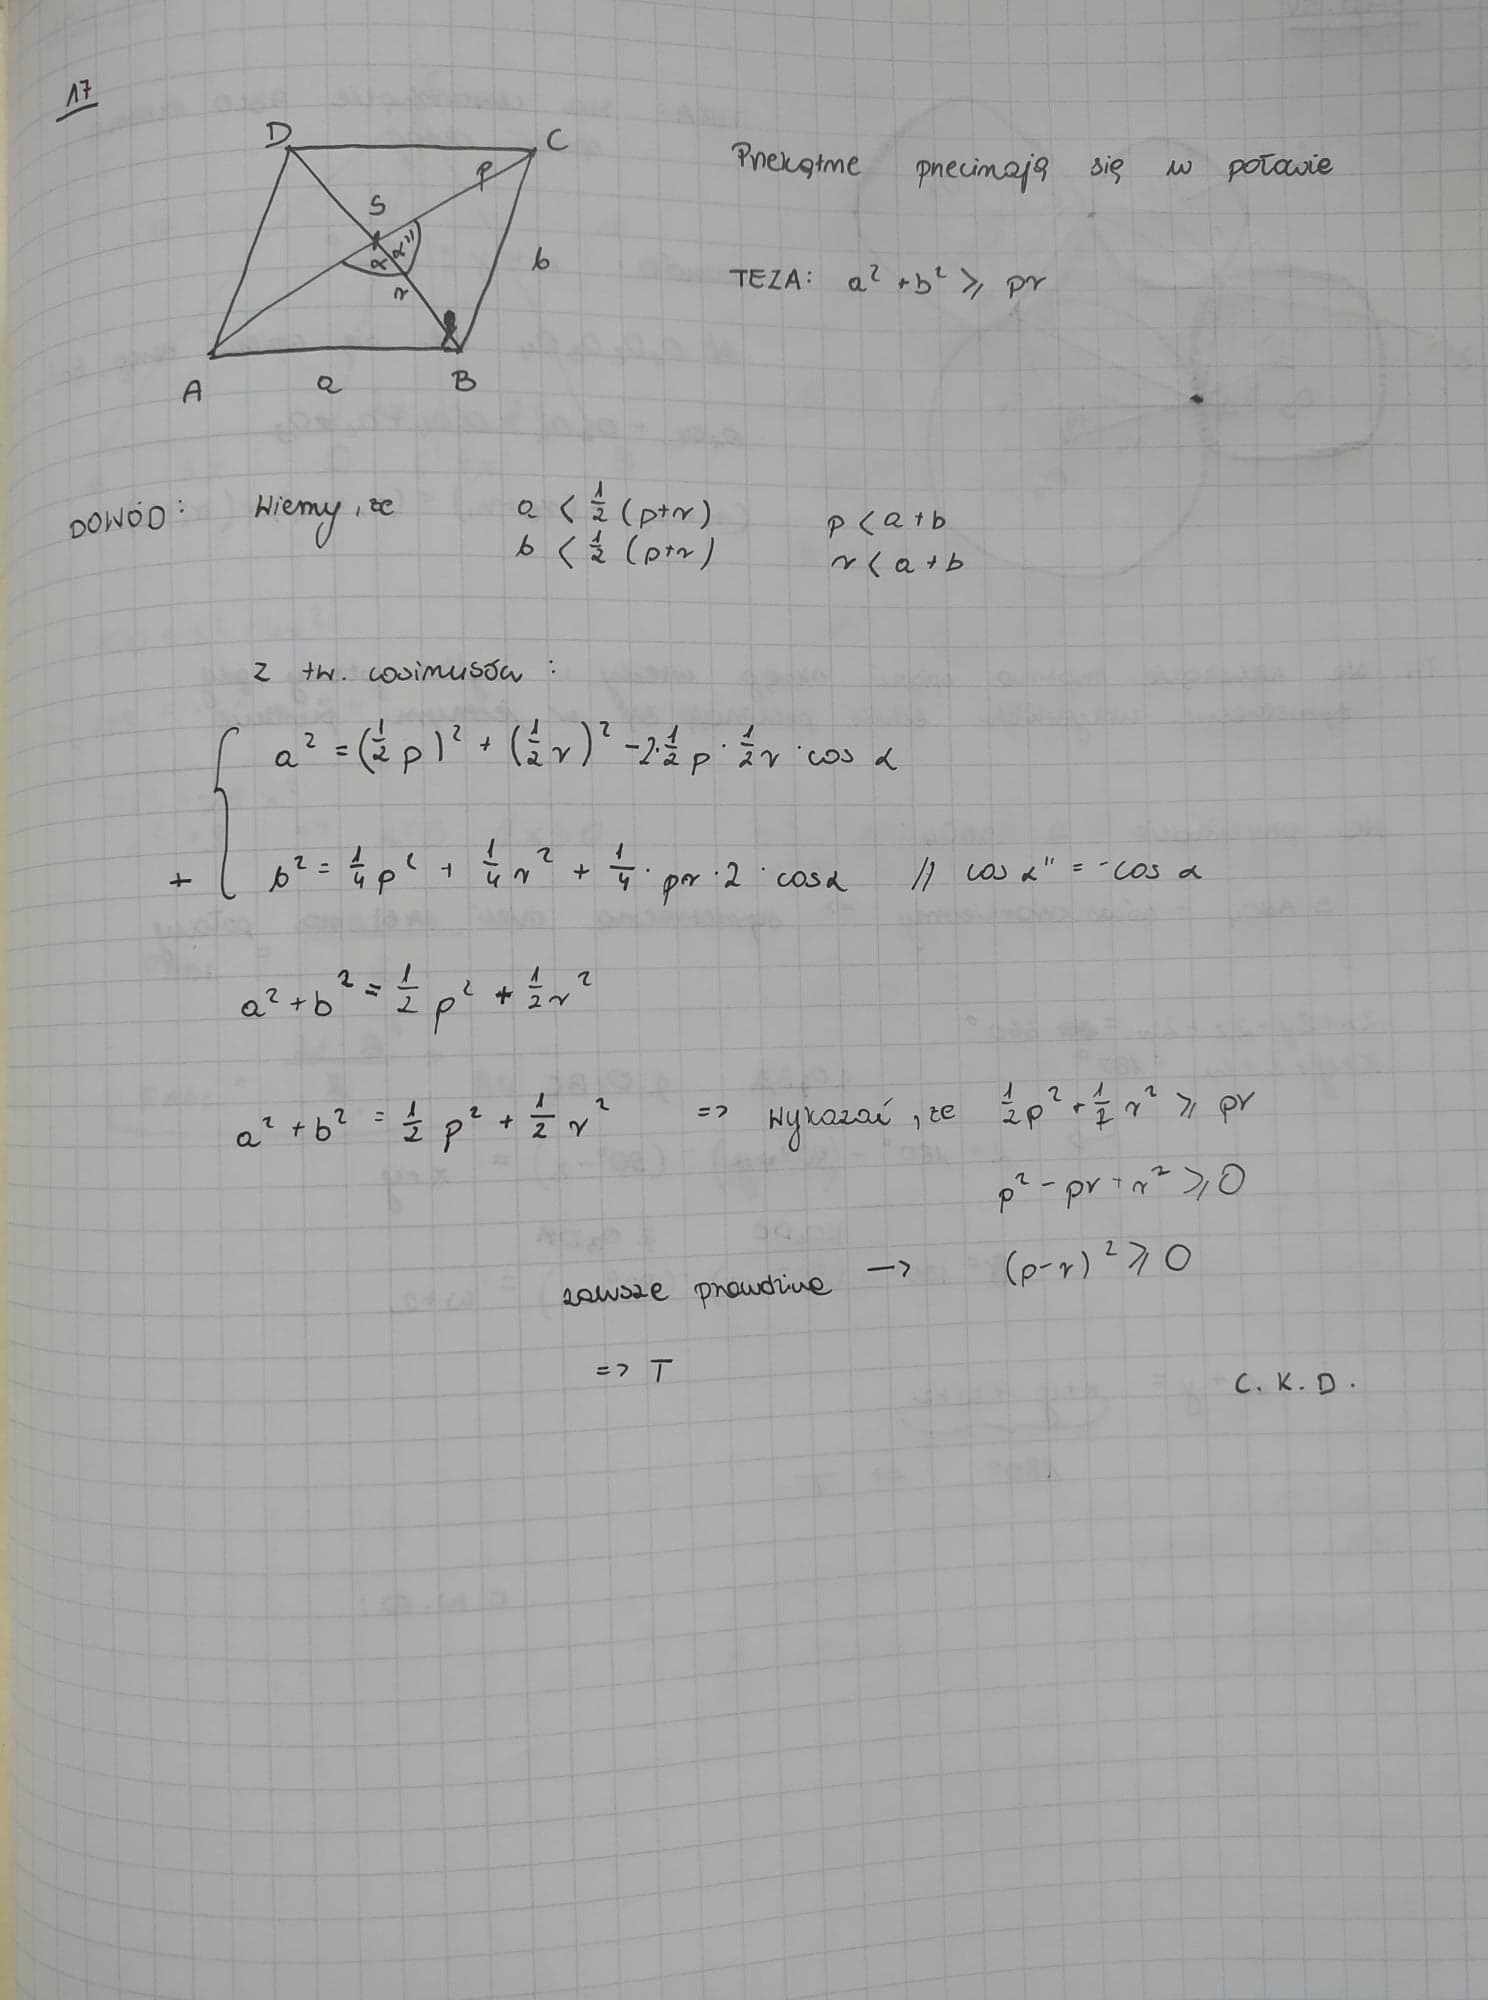 17
D C
Przekątne przecinają się w połowie
S p
α α"
r b
TEZA: a² + b² ⩾ pr
A a B
DOWÓD: Wiemy, że a < 1/2 (p+r) p < a+b
b < 1/2 (p+r) r < a+b
z tw. cosinusów:
a² = (1/2 p)² + (1/2 r)² - 2·1/2 p · 1/2 r · cos α
+ b² = 1/4 p² + 1/4 r² + 1/4 · pr · 2 · cos α // cos α" = -cos α
a² + b² = 1/2 p² + 1/2 r²
a² + b² = 1/2 p² + 1/2 r² => Wykazać, że 1/2 p² + 1/2 r² ⩾ pr
p² - pr + r² ⩾ 0
zawsze prawdziwe -> (p-r)² ⩾ 0
=> T
C. K. D.